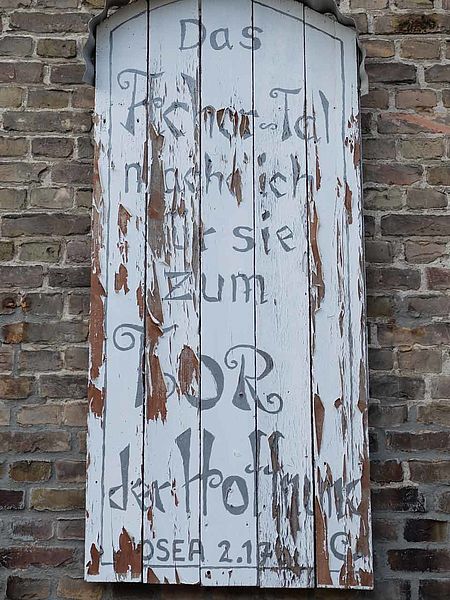 Das
Achor-Tal
mache ich
für sie
zum
TOR
der Hoffnung
HOSEA 2.17
©